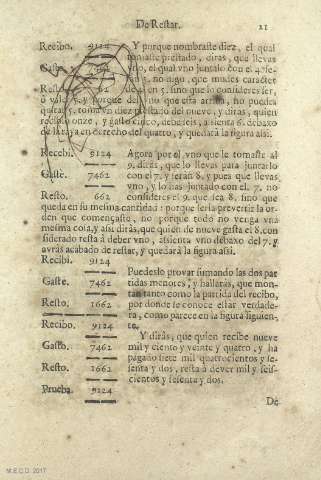 De Restar. 21
Recibo. 9124 Y porque nombraste diez, el qual
tomaste prestado, diras, que llevas
Gaste. vno, el qual vno juntalo con el 4. se-
ran 5. no digo, que mudes caracter
Resto. 62 del 4. en 5. sino que lo consideres ser,
o valer 5. y porque del vno que està arriba, no puedes
quitar 5. toma vn diez prestado del nueve, y diras, quien
recibiò onze, y gastò cinco, deberà 6. assienta 6. debaxo
de la raya en derecho del quatro, y quedarà la figura assi.
Recebi. 9124 Agora por el vno que le tomaste al
9. diras, que lo llevas para juntarlo
Gaste. 7462 con el 7. y seràn 8. y pues que llevas
vno, y lo has juntado con el 7. no
Resto. 662 consideres el 9. que sea 8. sino que
queda en su mesma cantidad: porque seria prevertir la or-
den que començaste, no porque todo no venga vna
mesma cosa, y assi diràs, que quien de nueve gasta el 8. con
siderado resta à deber vno, assienta vno debaxo del 7. y
avràs acabado de restar, y quedarà la figura assi.
Recibi. 9124
Puedeslo provar sumando las dos par
Gaste. 7462 tidas menores, y hallaràs, que mon-
tan tanto como la partida del recibo,
Resto. 1662 por donde se conoce estar verdade-
ra, como parece en la figura siguien-
Recibo. 9124 te.
Y diràs, que quien recibe nueve
Gasto. 7462 mil y ciento y veinte y quatro, y ha
pagado siete mil quatrocientos y se-
Resto. 1662 senta y dos, resta à dever mil y seis-
cientos y sesenta y dos.
Prueba. 9124
De
M.E.C.D. 2017